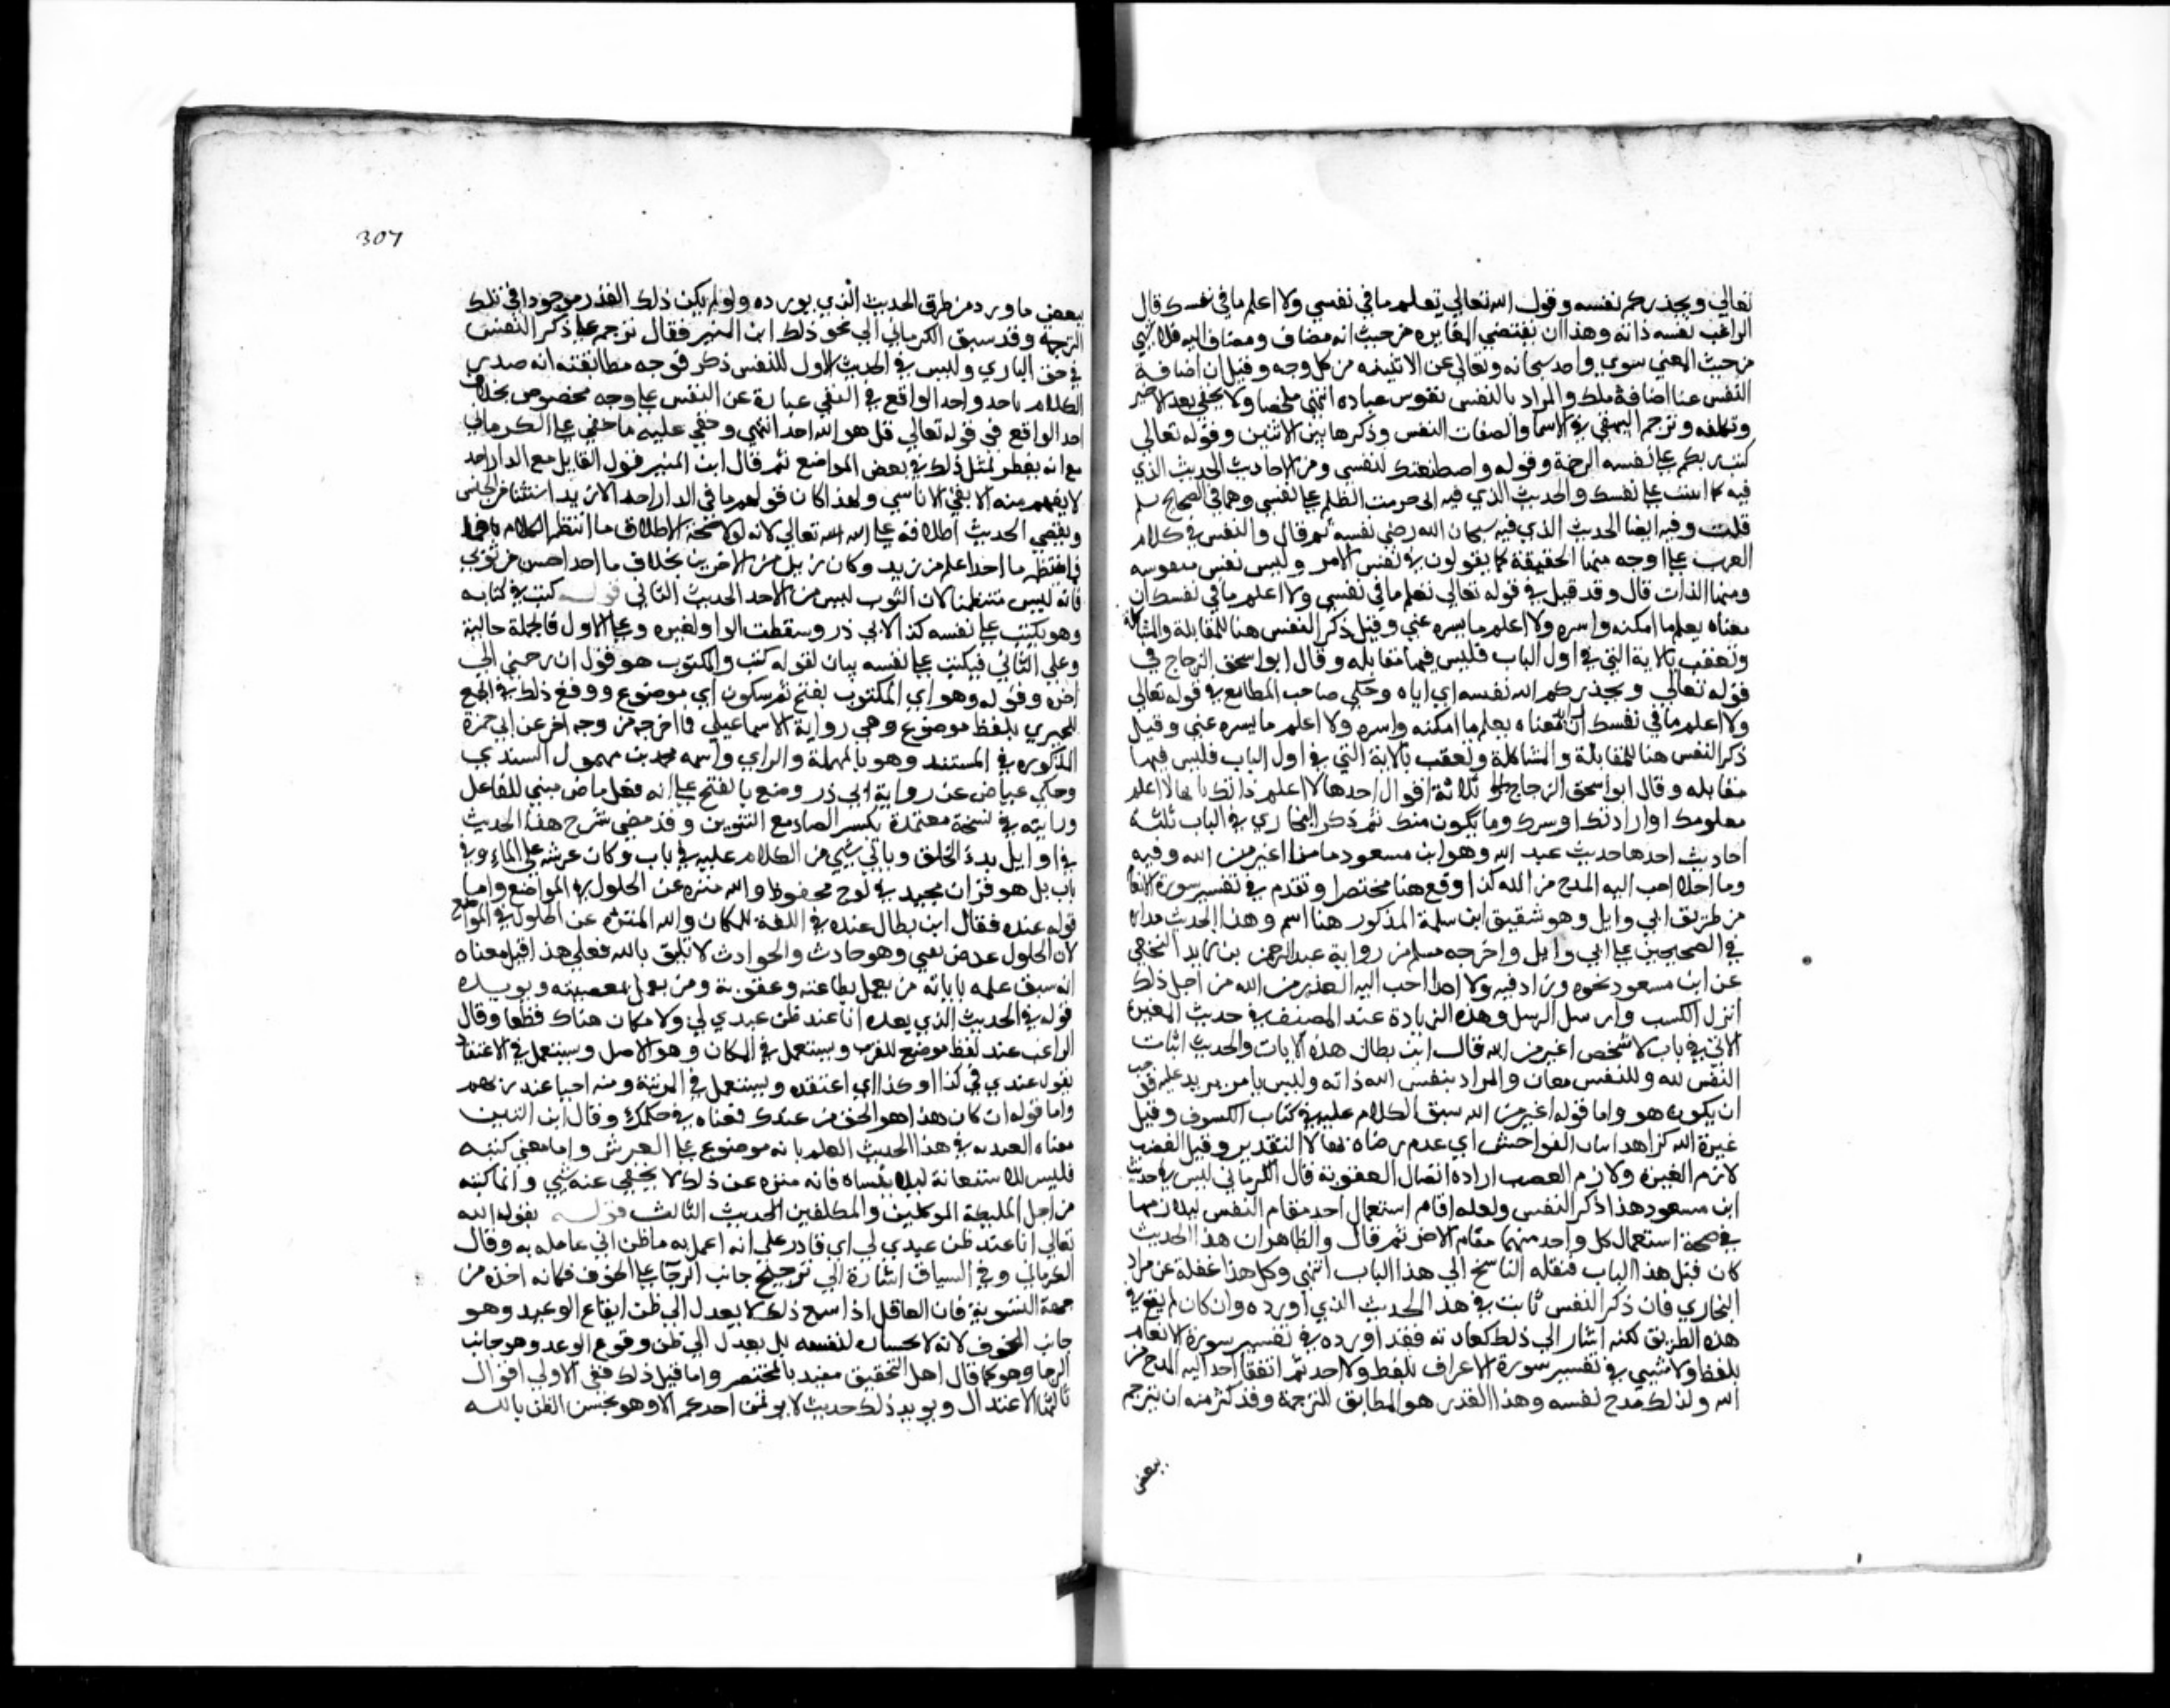 تعالي ويحذركم نفسه وقول الله تعالي تعلم ما في نفسي ولا اعلم ما في نفسك قال
الراغب نفسه ذاته وهذا ان يقتضي المغايره من حيث انه مضاف ومضاف اليه فلا شي
من حيث المعني سوي واحد سبحانه وتعالي عن الاثنينيه من كل وجه وقيل ان اضافة
النفس هنا اضافة ملك والمراد بالنفس نفوس عباده انتهي ملخصا ولا يخفي بعد الاخير
وتكلفه وترجم البيهقي في الاسما والصفات النفس وذكر هاتين الايتين وقوله تعالي
كتب ربكم علي نفسه الرحمة وقوله واصطنعتك لنفسي ومن الاحاديث الحديث الذي
فيه كما اثنيت علي نفسك والحديث الذي فيه اني حرمت الظلم علي نفسي وهما في الصحيح
قلت وفيه ايضا الحديث الذي فيه سبحان الله رضي نفسه ثم قال والنفس في كلام
العرب علي اوجه منها الحقيقة كما يقولون في نفس الامر وليس نفس منفوسه
ومنها الذات قال وقد قيل في قوله تعالي تعلم ما في نفسي ولا اعلم ما في نفسك ان
معناه يعلم ما اكنه واسره ولا اعلم ما يسره عني وقيل ذكر النفس هنا للمقابلة والمشاكلة
وتعقب بالاية التي في اول الباب فليس فيها مقابله وقال ابو اسحق الزجاج في
قوله تعالي ويحذركم الله نفسه اي اياه وحكي صاحب المطالع في قوله تعالي
ولا اعلم ما في نفسك ان معناه يعلم ما اكنه واسره ولا اعلم ما يسره عني وقيل
ذكر النفس هنا للمقابلة والمشاكلة وتعقب بالاية التي في اول الباب فليس فيها
مقابله وقال ابو اسحق الزجاج ثلاثة اقوال احدها لا اعلم ذاتك لا اعلم
معلومك او ارادتك او سرك وما يكون منك ثم ذكر البخاري في الباب ثلثة
احاديث احدها حديث عبد الله وهو ابن مسعود ما من اغير من الله وفيه
وما احد احب اليه المدح من الله كذا وقع هنا مختصرا وتقدم في تفسير سورة الانعام
من طريق ابي وايل وهو شقيق ابن سلمة المذكور هنا اسم وهذا الحديث مداره
في الصحيحين علي ابي وايل واخرجه مسلم من رواية عبد الرحمن بن يزيد النخعي
عن ابن مسعود نحوه وزاد فيه ولا احد احب اليه العذر من الله من اجل ذلك
انزل الكتب وارسل الرسل وهذه الزيادة عند المصنف في حديث المغيرة
الاتي في باب لا شخص اغير من الله قال ابن بطال هذه الايات والحديث اثبات
النفس لله وللنفس معان والمراد بنفس الله ذاته وليس بامر يزيد عليه فوجب
ان يكون هو واما قوله اغير من الله سبق الكلام عليه في كتاب الكسوف وقيل
غيرة الله كراهة اتيان الفواحش اي عدم رضاه بها لا التقدير وقيل الغضب
لازم الغيرة ولازم الغضب ارادة ايصال العقوبة قال الكرماني ليس في حديث
ابن مسعود هذا ذكر النفس ولعله اقام استعمال احد مقام النفس
في صحة استعمال كل واحد منهما مقام الاخر ثم قال والظاهر ان هذا الحديث
كان قبل هذا الباب فنقله الناسخ الي هذا الباب انتهي وكل هذا غفلة عن مراد
البخاري فان ذكر النفس ثابت في هذا الحديث الذي اورده وان كان لم يقع في
هذه الطريق لكنه اشار الي ذلك كعادته فقد اورده في تفسير سورة الانعام
بلفظ ولا شيي وفي تفسير سورة الاعراف بلفظ ولا احد ثم اتفقا احب اليه المدح من
الله ولذلك مدح نفسه وهذا القدر هو المطابق للترجمة وقد كثر منه ان يترجم
ببعض
307
ببعض ما ورد من طرق الحديث الذي يورده ولو لم يكن ذلك القدر موجودا في تلك
الترجمة وقد سبق الكرماني الي نحو ذلك ابن المنير فقال ترجم علي ذكر النفس
في حق الباري وليس في الحديث الاول للنفس ذكر فوجه مطابقته انه صدر
الكلام باحد واحد الواقع في النفي عبارة عن النفس علي وجه مخصوص بخلاف
احد الواقع في قوله تعالي قل هو الله احد انتهي وخفي عليه ما خفي علي الكرماني
مع انه يفطن لمثل ذلك في بعض المواضع ثم قال ابن المنير قول القايل مع الدار احد
لا يفهم منه الا نفي الاناسي ولهذا كان قولهم ما في الدار احد الا زيد استثنا من الجنس
ويقضي الحديث اطلاقه علي الله تعالي لانه لولا صحة الاطلاق ما انتظم الكلام كما
انتظم ما احد اعلم من زيد وكان زيدا من الاحدين بخلاف ما احد احسن من ثوبي
فانه ليس منتظما لان الثوب ليس من الاحد الحديث الثاني قوله كتب في كتابه
وهو يكتب علي نفسه كذا لابي ذر وسقطت الواو لغيره وعلي الاول فالجملة حالية
وعلي الثاني فيكتب علي نفسه بيان لقوله كتب والمكتوب هو قوله ان رحمتي الي
اخره وقوله وهو اي المكتوب بفتح ثم سكون اي موضوع ووقع ذلك في الجمع
للحميدي بلفظ موضوع وهي رواية الاسماعيلي فيما اخرجه من وجه اخر عن ابي حمزة
المذكور في المستند وهو بالمهملة والزاي واسمه محمد بن ميمون السندي
وحكي عياض عن رواية ابي ذر وضع بالفتح علي انه فعل ماض مبني للفاعل
ورايته في نسخة معتمدة بكسر الضاد مع التنوين وقد مضي شرح هذا الحديث
في اوايل بدء الخلق وياتي شيي من الكلام عليه في باب وكان عرشه علي الماء وفي
باب بل هو قران مجيد في لوح محفوظ والله منزه عن الحلول في المواضع واما
قوله عنده فقال ابن بطال عنده في اللغة للمكان والله المنزه عن الحلول في المواضع
لان الحلول عرض يفني وهو حادث والحوادث لا تليق بالله فعلي هذا قيل معناه
انه سبق علمه باثابة من يعمل بطاعته وعقوبة ومن يعمل بمعصيته ويويده
قوله في الحديث الذي بعده انا عند ظن عبدي بي ولا مكان هناك قطعا وقال
الراغب عند لفظ موضوع للقرب ويستعمل في المكان وهو الاصل ويستعمل في الاعتقاد
يقول عندي في كذا او كذا اي اعتقده ويستعمل في المرتبة ومنه احيا عند ربهم
واما قوله ان كان هذا هو الحق من عندك فمعناه في حكمك وقال ابن التين
معناه العنديه في هذا الحديث العلم بانه موضوع علي العرش واما معني كتبه
فليس للاستعانة ليلا ينساه فانه منزه عن ذلك لا يخفي عنه شيي وانما كتبه
من اجل المليكة الموكلين والمكلفين الحديث الثالث قوله يقول الله
تعالي انا عند ظن عبدي بي اي قادر علي انه اعمل به ما ظن اني عامله به وقال
الكرماني وفي السياق اشارة الي ترجيح جانب الرجا علي الخوف فكانه اخذه من
جهة التسوية فان العاقل اذا سمع ذلك لا يعدل الي ظن ايقاع الوعيد وهو
جانب الخوف لانه لا يحسبه لنفسه بل يعدل الي ظن وقوع الوعد وهو جانب
الرجا وهو كما قال اهل التحقيق مقيد بالمحتضر واما قبل ذلك ففي الاولي اقوال
ثالثها الاعتدال ويويد ذلك حديث لا يموتن احدكم الا وهو يحسن الظن بالله